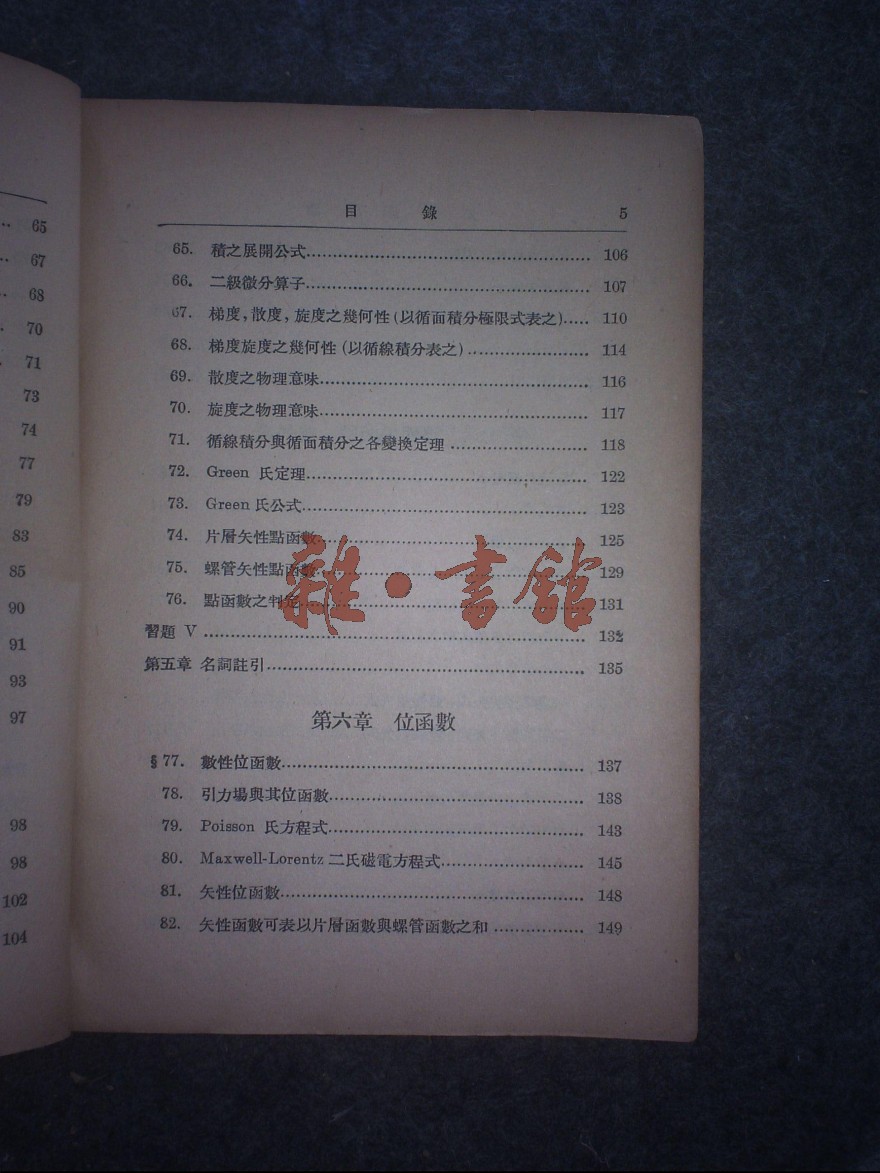 65
67
68
70
71
73
74
77
79
83
85
90
91
93
97
98
98
102
104
目錄 5
65. 積之展開公式 106
66. 二級微分算子 107
67. 梯度,散度,旋度之幾何性(以循面積分極限式表之) 110
68. 梯度旋度之幾何性(以循線積分表之) 114
69. 散度之物理意味 116
70. 旋度之物理意味 117
71. 循線積分與循面積分之各變換定理 118
72. Green 氏定理 122
73. Green 氏公式 123
74. 片層矢性點函數 125
75. 螺管矢性點函數 129
76. 點函數之判定 131
習題 V 132
第五章 名詞註引 135
第六章 位函數
§77. 數性位函數 137
78. 引力場與其位函數 138
79. Poisson 氏方程式 143
80. Maxwell-Lorentz 二氏磁電方程式 145
81. 矢性位函數 148
82. 矢性函數可表以片層函數與螺管函數之和 149
雜·書館